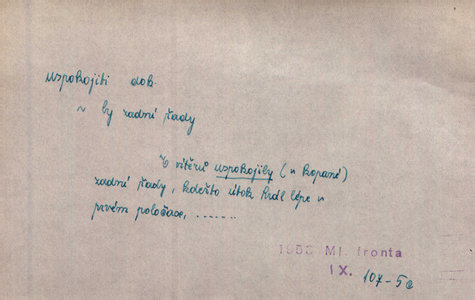 uspokojiti dok.
~ by zadní řady
U vítězů uspokojily (v kopané)
zadní řady, kdežto útok hrál lépe v
prvém poločase, .......
1953 Ml. fronta
IX. 107-5a